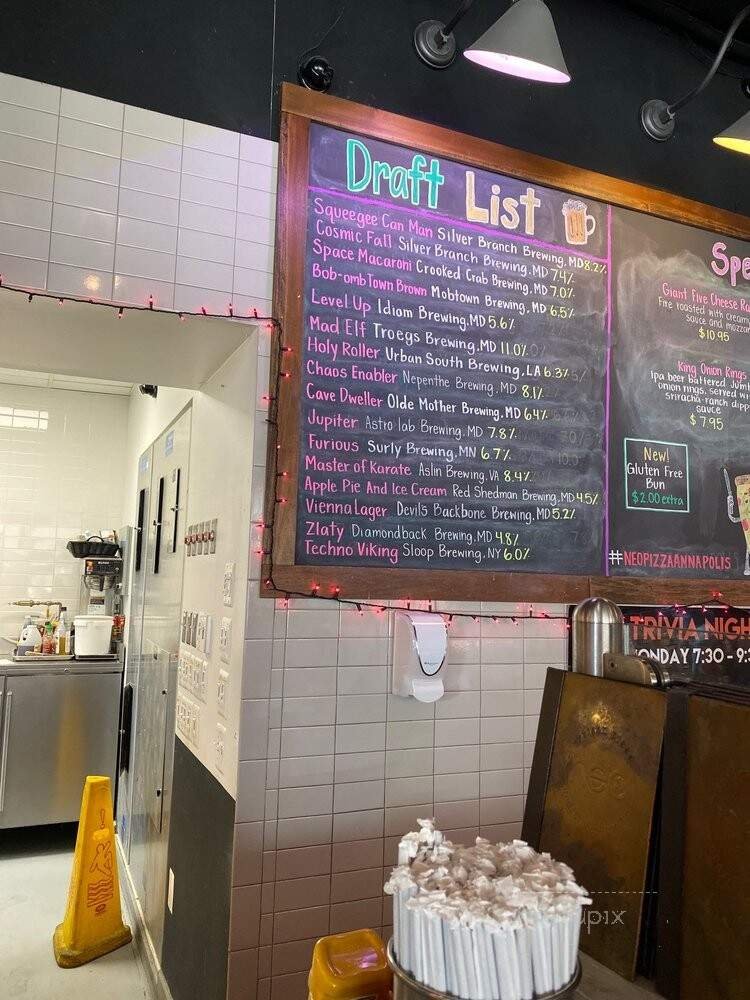 Draft List
Squeegee Can Man Silver Branch Brewing, MD 8.2%
Cosmic Fall Silver Branch Brewing, MD 7.4%
Space Macaroni Crooked Crab Brewing, MD 7.0%
Bob-omb Town Brown Mobtown Brewing, MD 6.5%
Level Up Idiom Brewing, MD 5.6%
Mad Elf Troegs Brewing, MD 11.0%
Holy Roller Urban South Brewing, LA 6.3%
Chaos Enabler Nepenthe Brewing, MD 8.1%
Cave Dweller Olde Mother Brewing, MD 6.4%
Jupiter Astro lab Brewing, MD 7.8%
Furious Surly Brewing, MN 6.7%
Master of Karate Aslin Brewing, VA 8.4%
Apple Pie And Ice Cream Red Shedman Brewing, MD 4.5%
Vienna Lager Devils Backbone Brewing, MD 5.2%
Zlaty Diamondback Brewing, MD 4.8%
Techno Viking Sloop Brewing, NY 6.0%
Spe
Giant Five Cheese Ra
Fire roasted with creamy
sauce and mozzar
$10.95
King Onion Rings
Ipa beer battered Jumb
onion rings, served wi
sriracha-ranch dipp
sauce
$7.95
New!
Gluten Free
Bun
$2.00 extra
#NEOPIZZAANNAPOLIS
TRIVIA NIGH
MONDAY 7:30 - 9:3
upix